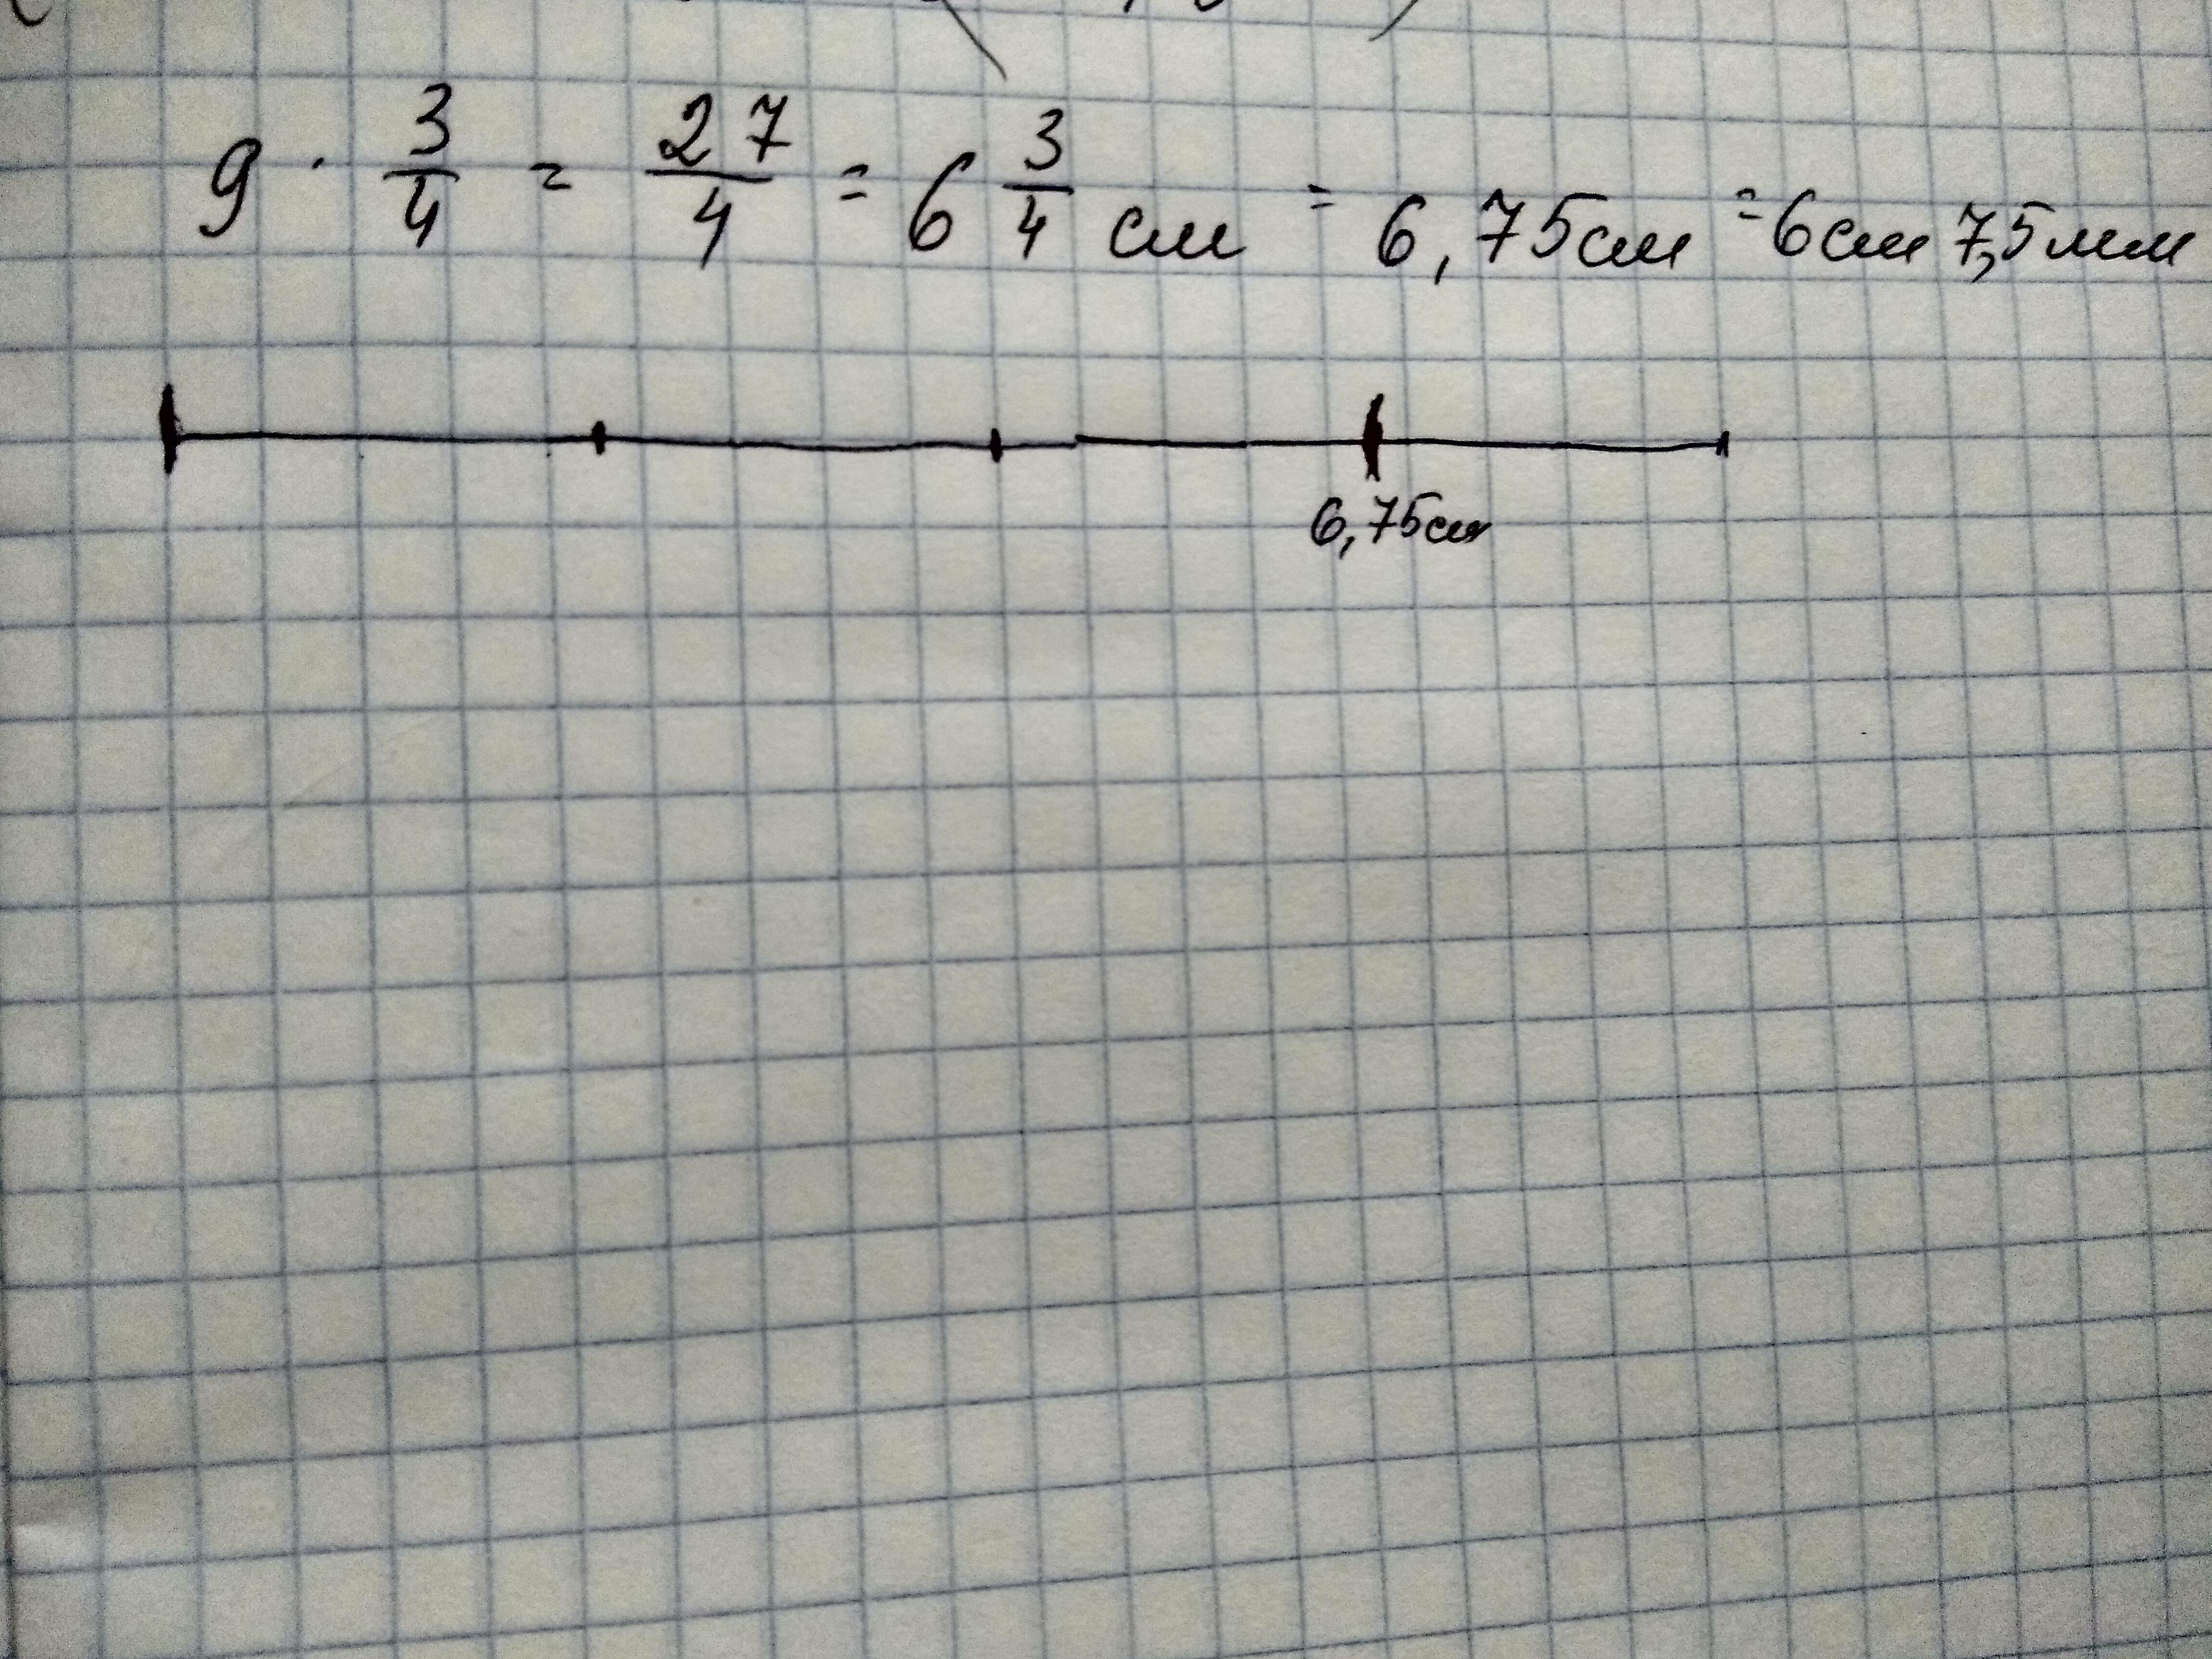 9 · 3/4 = 27/4 = 6 3/4 см = 6,75см = 6см 7,5мм
6,75см